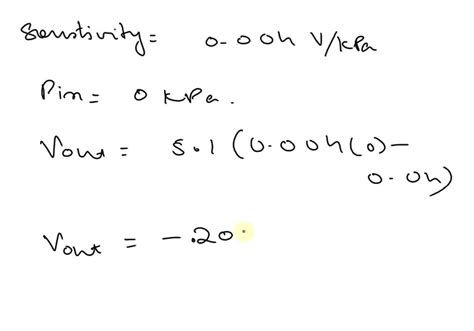 Sensitivity = 0.004 V/kPa
Pin = 0 kPa.
Vout = 5.1 (0.004(0) -
0.04)
Vout = -.20